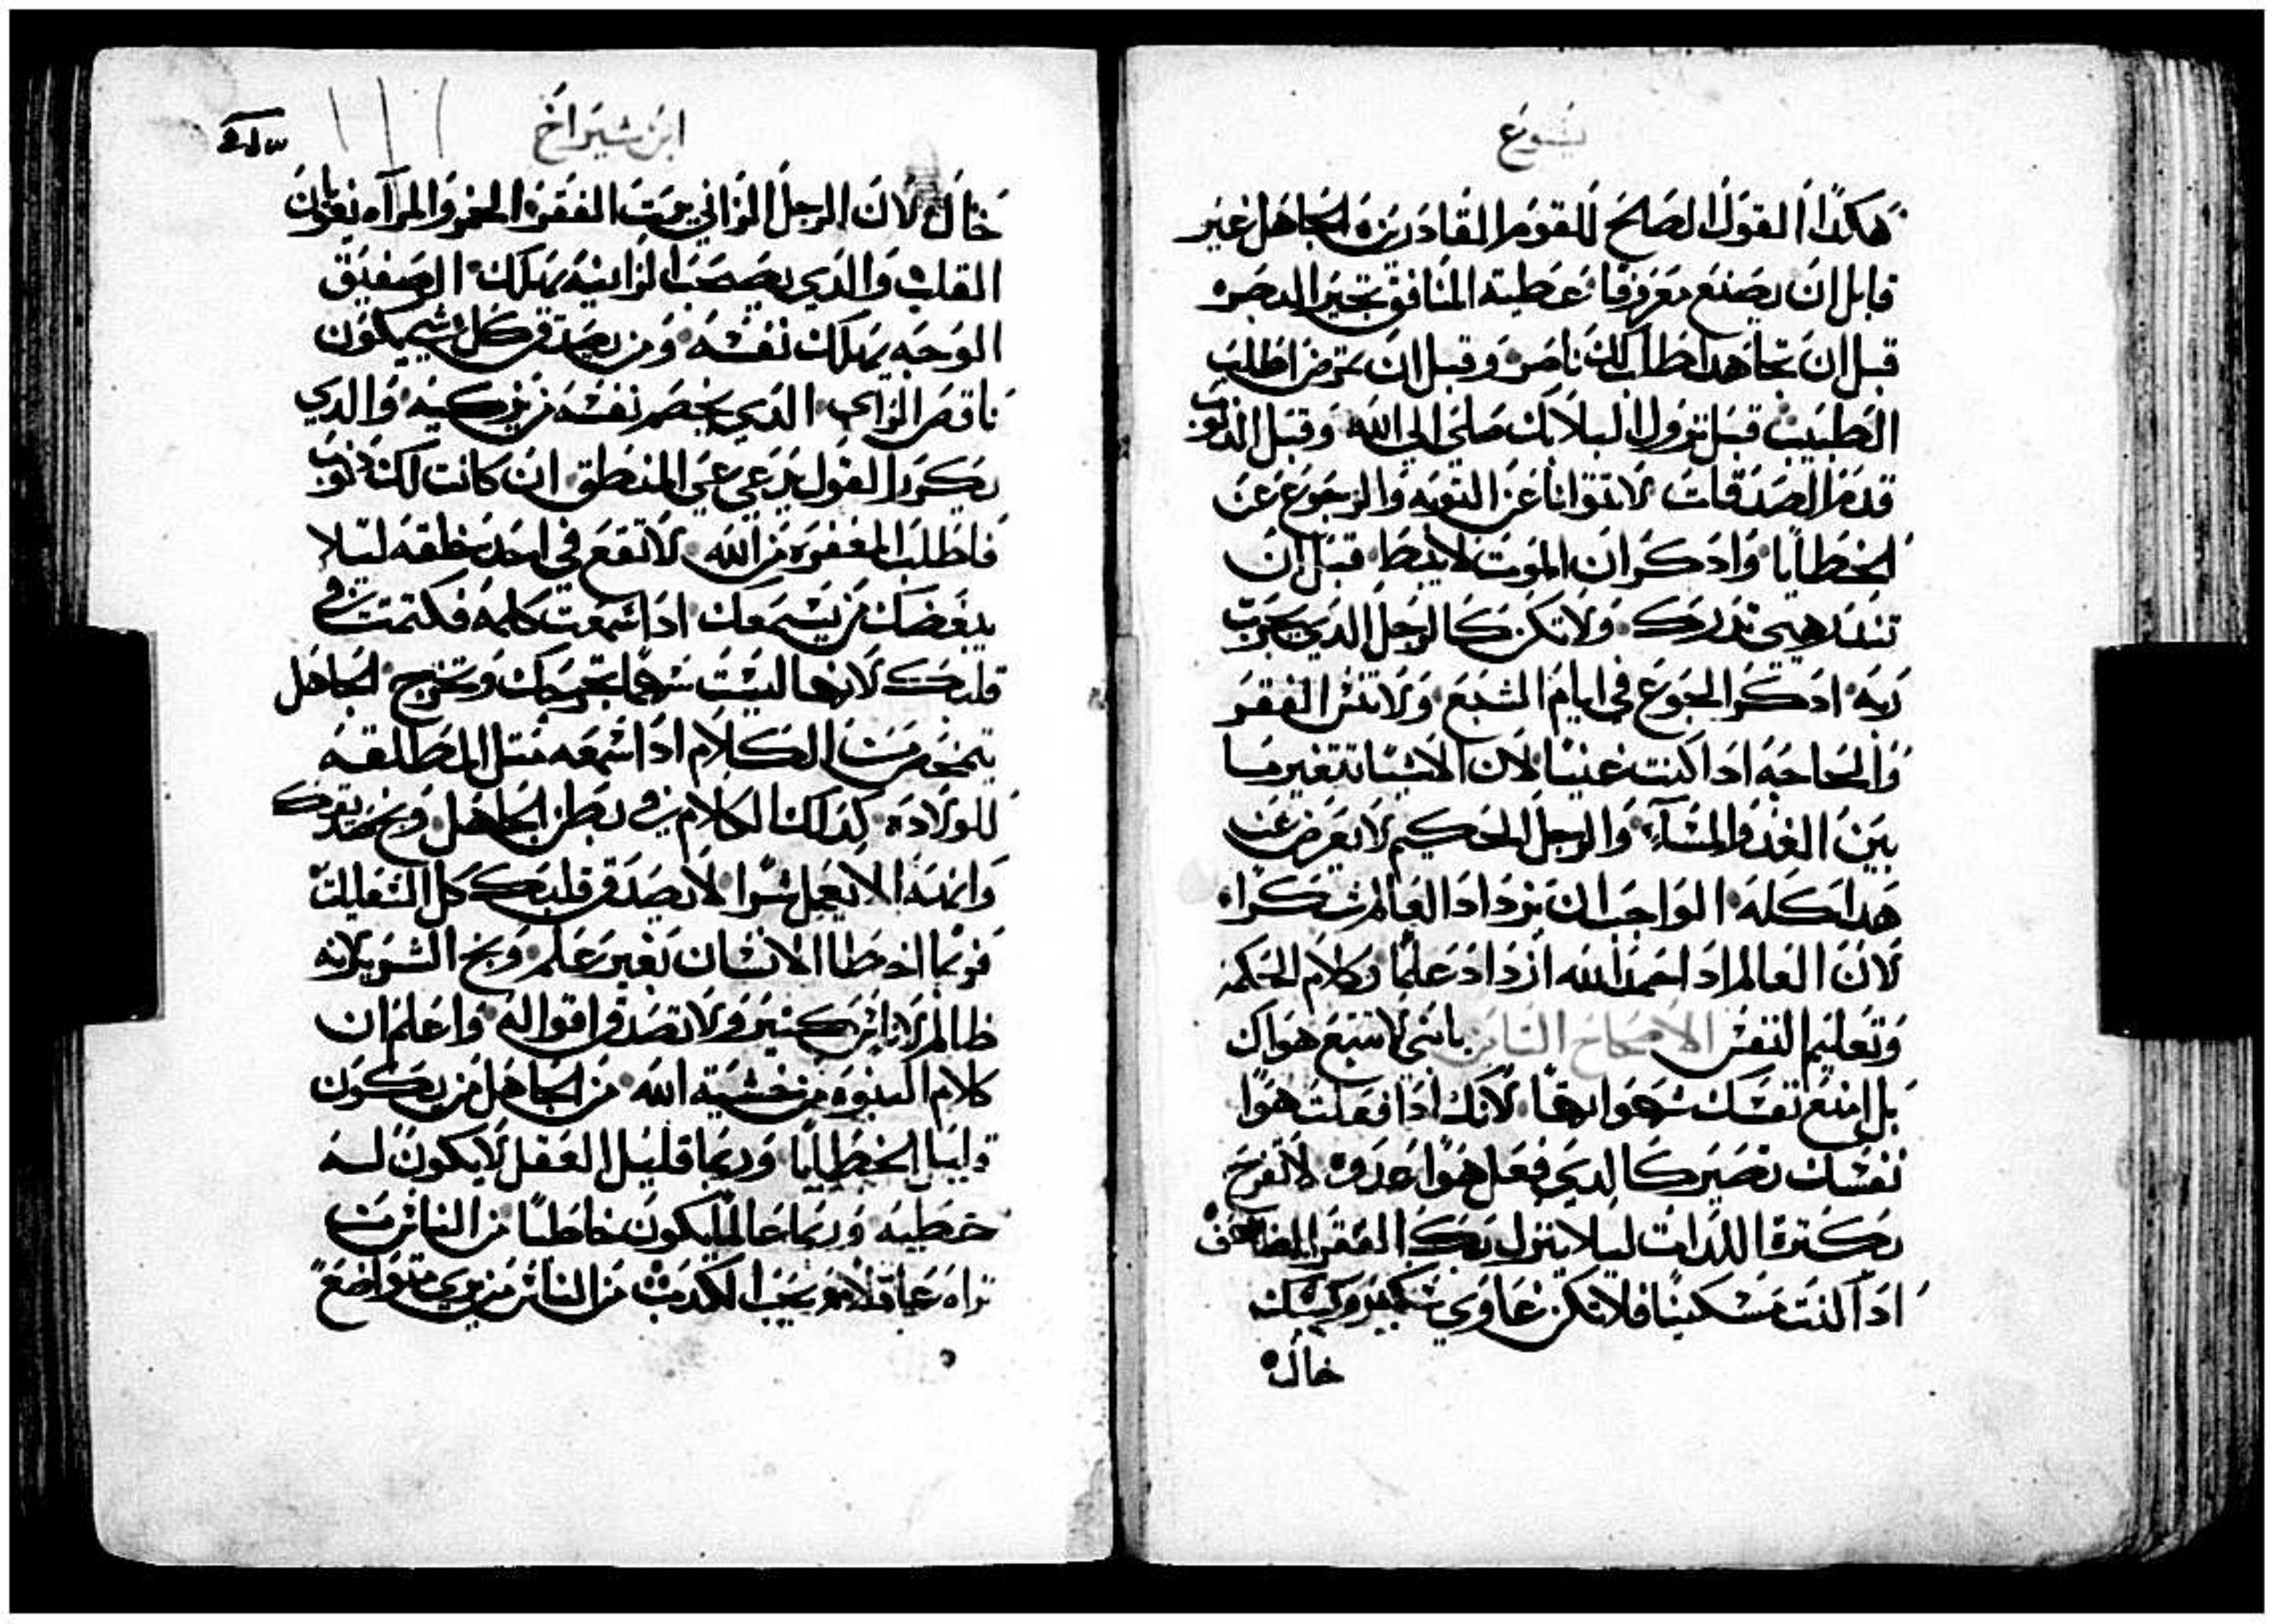 يشوع
هكدا القول الصالح للقوم القادرين الجاهل غير
قابل ان يصنع معروفا عطية المنافق تحير البصره
قبل ان تجاهد اطلب لك ناصر وقبل ان تمرض اطلب
الطبيب قبل نزول البلا بك صلي الي الله وقبل الدنوب
قدم الصدقات لا تتوانا عن التوبه والرجوع عن
الخطايا وادكر ان الموت لا يبطا قبل ان
تندر هيي ندرك ولا تكن كالرجل الدي يجرب
ربه ادكر الجوع في ايام الشبع ولا تنس الفقر
والحاجه ادا كنت غنيا لان الاشيا تتغير ما
بين الغد والمساء والرجل الحكيم لا يعرض عن
هدا كله الواجب ان يزداد العالم شكرا
لان العالم ادا حمد الله ازداد علما وكلام الحكمه
وتعليم النفس الاصحاح الثامن يا بني لا تتبع هواك
بل امنع نفسك شهواتها لانك ادا فعلت هوا
نفسك تصير كالدي فعل هوا عدوه لا تفرح
بكترة اللدات ليلا ينزل بك الفقر المضاعف
ادا كنت مسكينا فلا تكن غاوي وكيسك
خال
ابن شيراخ
خال لان الرجل الزاني الخمر والمراه
القلب والدي يصحب الزانيه يهلك الصفيق
الوجه يهلك نفسه ومن يصدق كل شي يكون
ناقص الراي الدي يخصم نفسه من يزكيه والدي
يكرر القول يدعي عي المنطق ان كانت لك دنوب
فاطلب المغفره من الله لا تقع في احد خلقه ليلا
يبغضك من يسمعك ادا سمعت كلمه فكتمت في
قلبك لانها ليست سهما يجرحك وتخرج الجاهل
يتمخض من الكلام ادا سمعه متل المطلقه
للولاده كدلك الكلام في بطن الجاهل وبخ صديقك
وانهه الا يعمل سرا لا يصدق قلبك كل
فربما اخطا الانسان بغير علم وبخ الشرير لانه
ظالم لاناس كتير ولا تصدق اقواله واعلم ان
كلام النبوه من خشية الله من الجاهل من يكون
قليل الخطايا وربما قليل العقل لا يكون له
خطيه وربما عالما يكون خاطيا من الناس من
تراه عاقلا يحب الكدب من الناس من يري متواضع